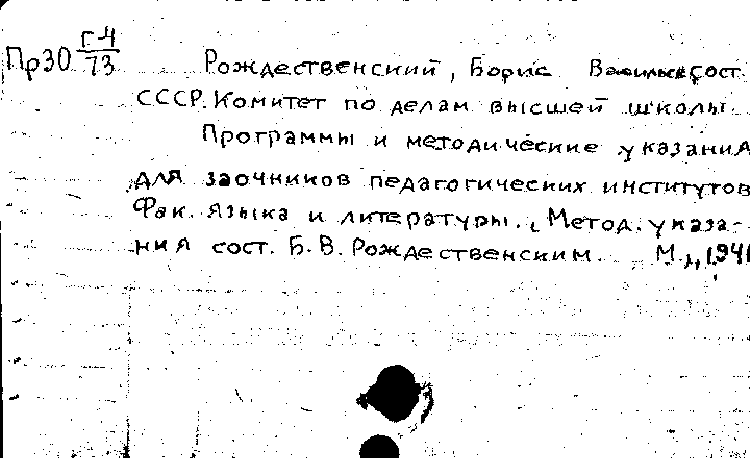 Пр30 Г-4/73
Рождественский, Борис Васильев сост.
СССР. Комитет по делам высшей школы
Программы и методические указания
для заочников педагогических институтов
Фак. языка и литературы. Метод. указа-
ния сост. Б. В. Рождественским. М., 1941